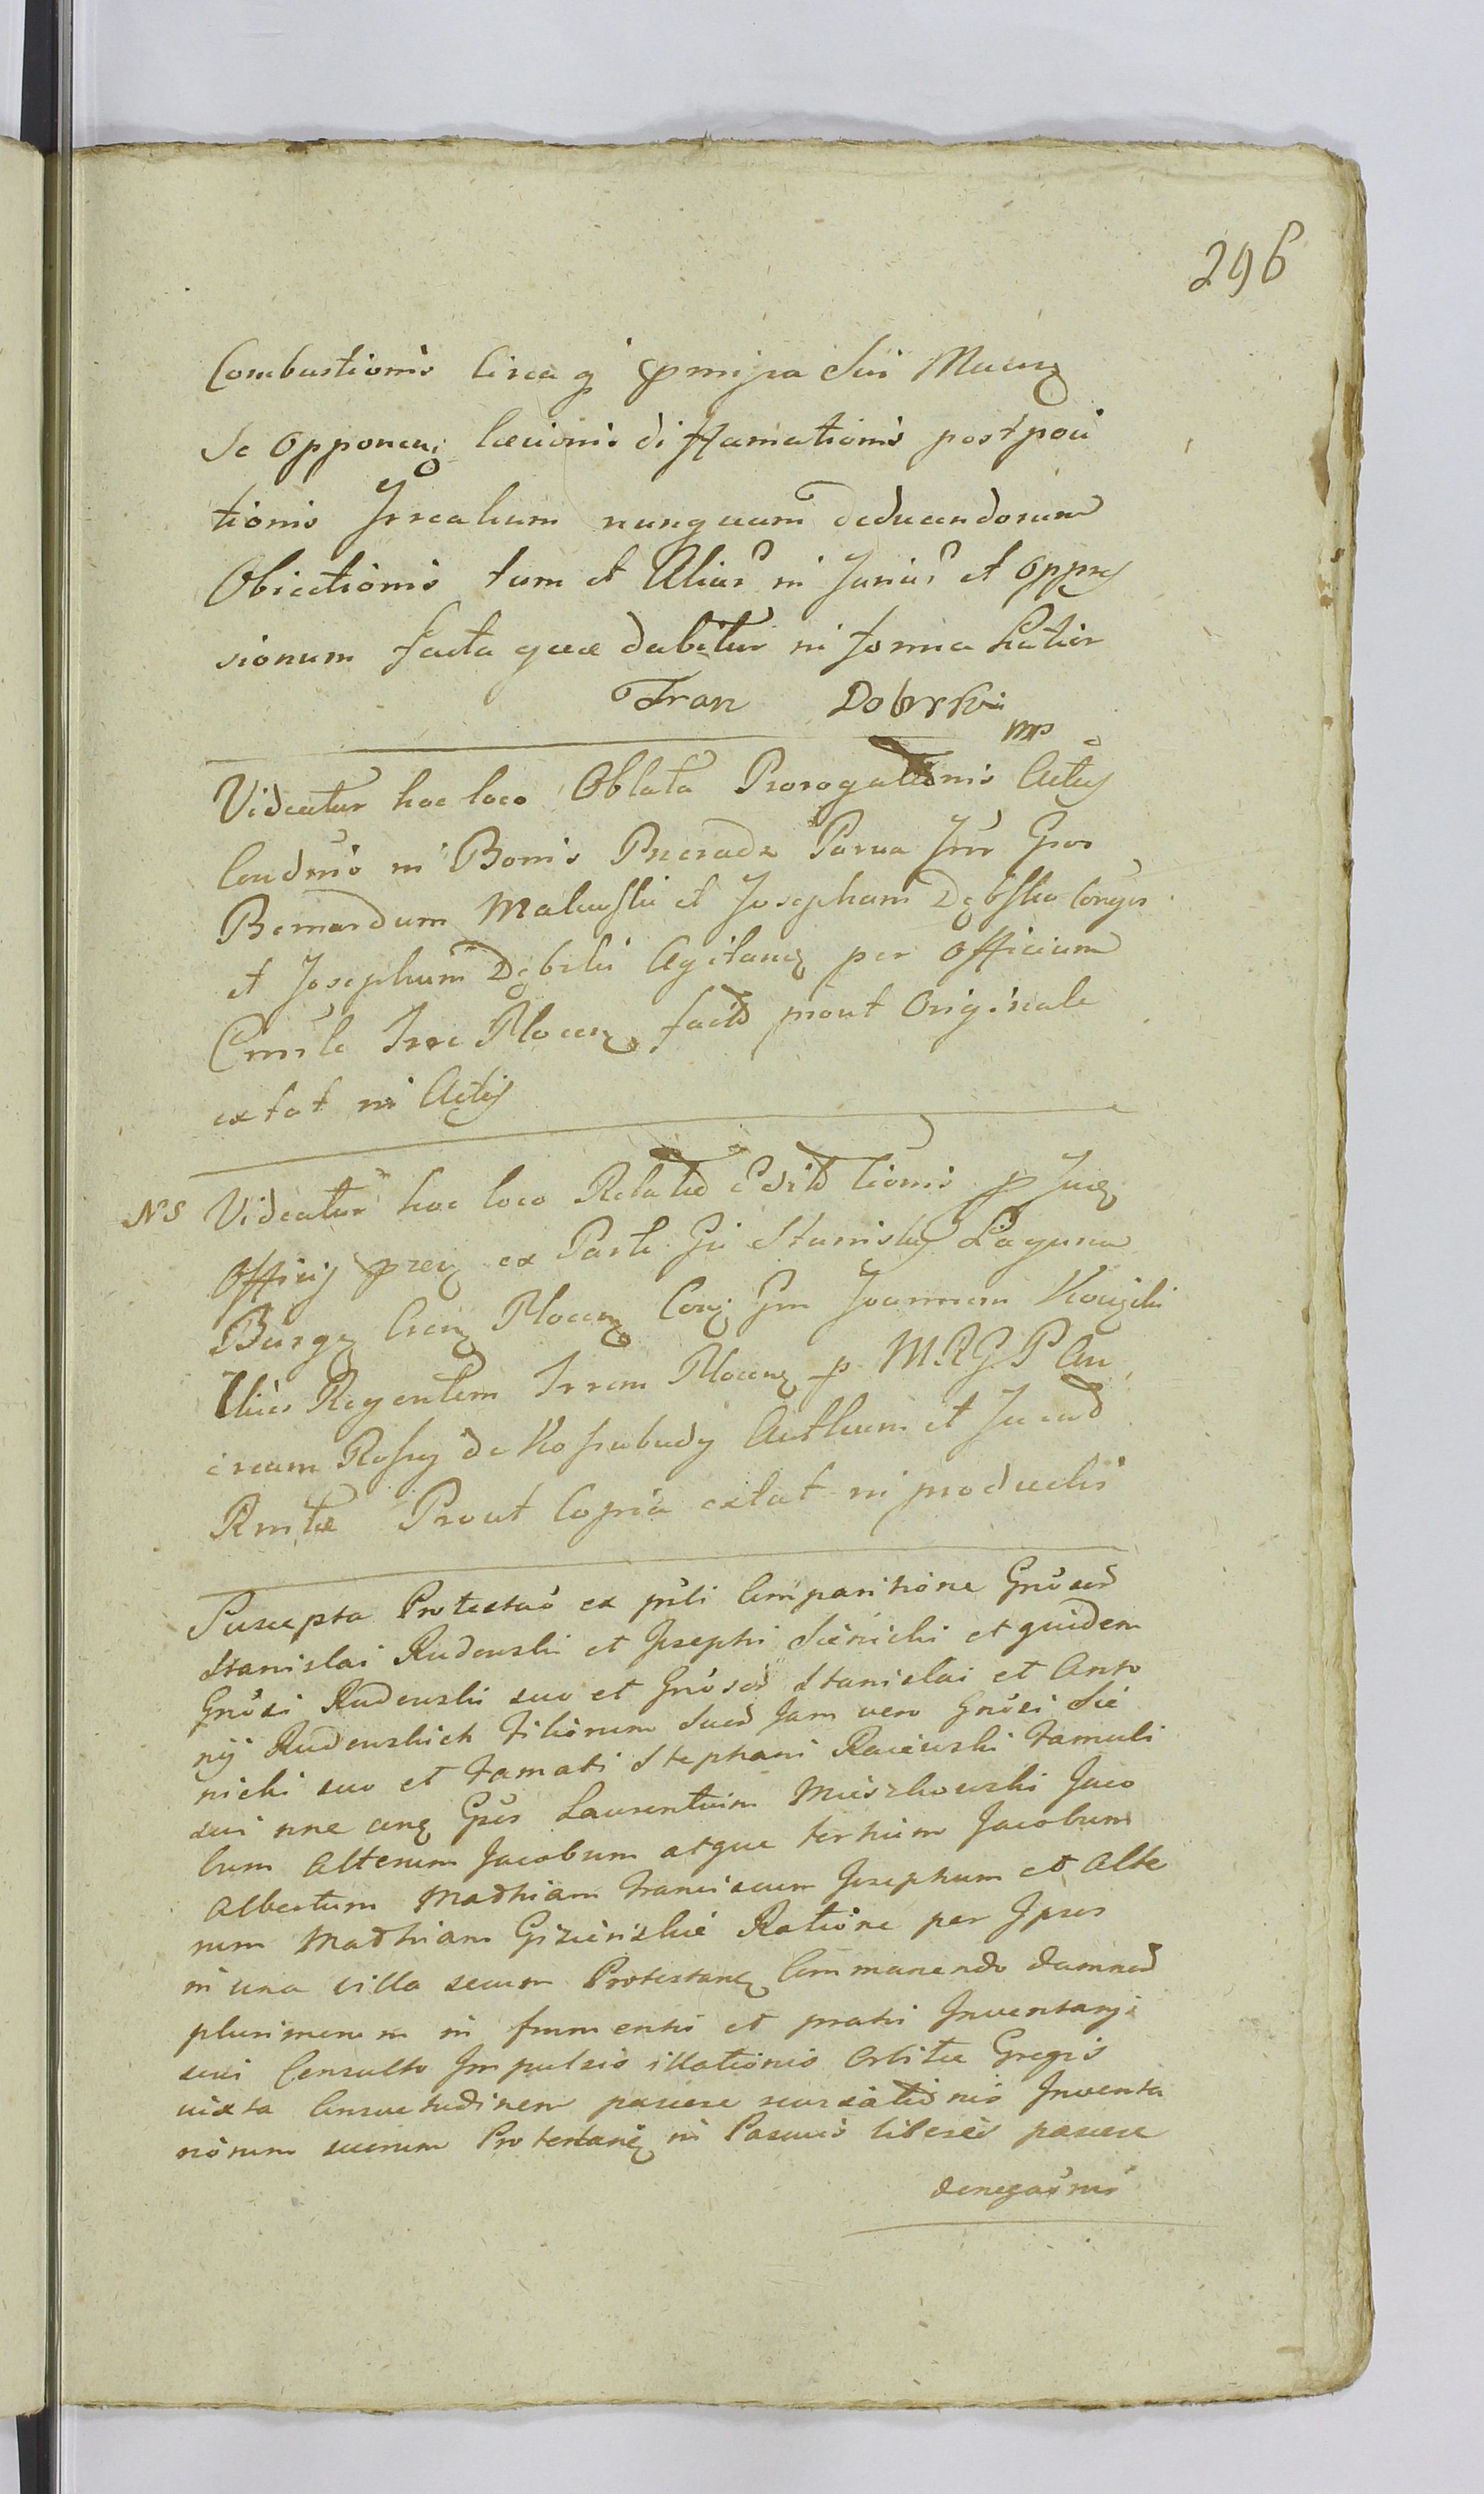 296
Combustionis Circa q pmissa Sui Manuq
Se Opponenq laesionis diffamationis postposi
tionis Irrealium nunquam deducendorum
Obiectionis tum et Alias in Jurias et oppres
sionum facta quae dabitur in forma Latior
Fran Dobrski
mp
Videatur hoc loco Oblata Prorogationis Actus
Condnis in Bonis Parva Inr Gsos
Bernardum et Josepham Dębska Conges
et Josephum Dębski Agitanq per officium
Cnsle Trre Plocenq facta prout Originale
extat in Actis
NS Videatur hoc loco Relatio p Jucq
Officij przq ex Parte Gsi Stanislai Laguna
Burgq Crenq Plocenq Conq Gsm Joannem
Regentem Trrem Plocenq p M.R.G.P. An
dream de Actkum et Jurad
Rmtae Prout Copia extat in productis
Suscepta Protestao ex psli Comparitione Gnosor
Stanislai Rudowski et Josephi Sienicki et quidem
Gnosi Rudowski suo et Gnosor Stanislai et Anto
nij Rudowskich Filiorum Suor Jam vero Gnosi Sie
nicki suo et Famati Stephani Raciewski famuli
sui nne cnq Gsos Laurentium Mieszkowski Jaco
bum Alterum Jacobum atque tertium Jacobum
Albertum Mathiam Franciscum Josephum et Alte
rum Mathiam Gizinskie Ratione per Ipsos
in una villa secum Protestanq Commanendo damnor
plurimorum in frumentis et pratis Inventarij
sui Consulto Impulsis illationis Orbitae Gregis
iuxta Consuetudinem pascere Inventa
riorum suorum Protestanq in Pascuis liberis pascere
denegaonis